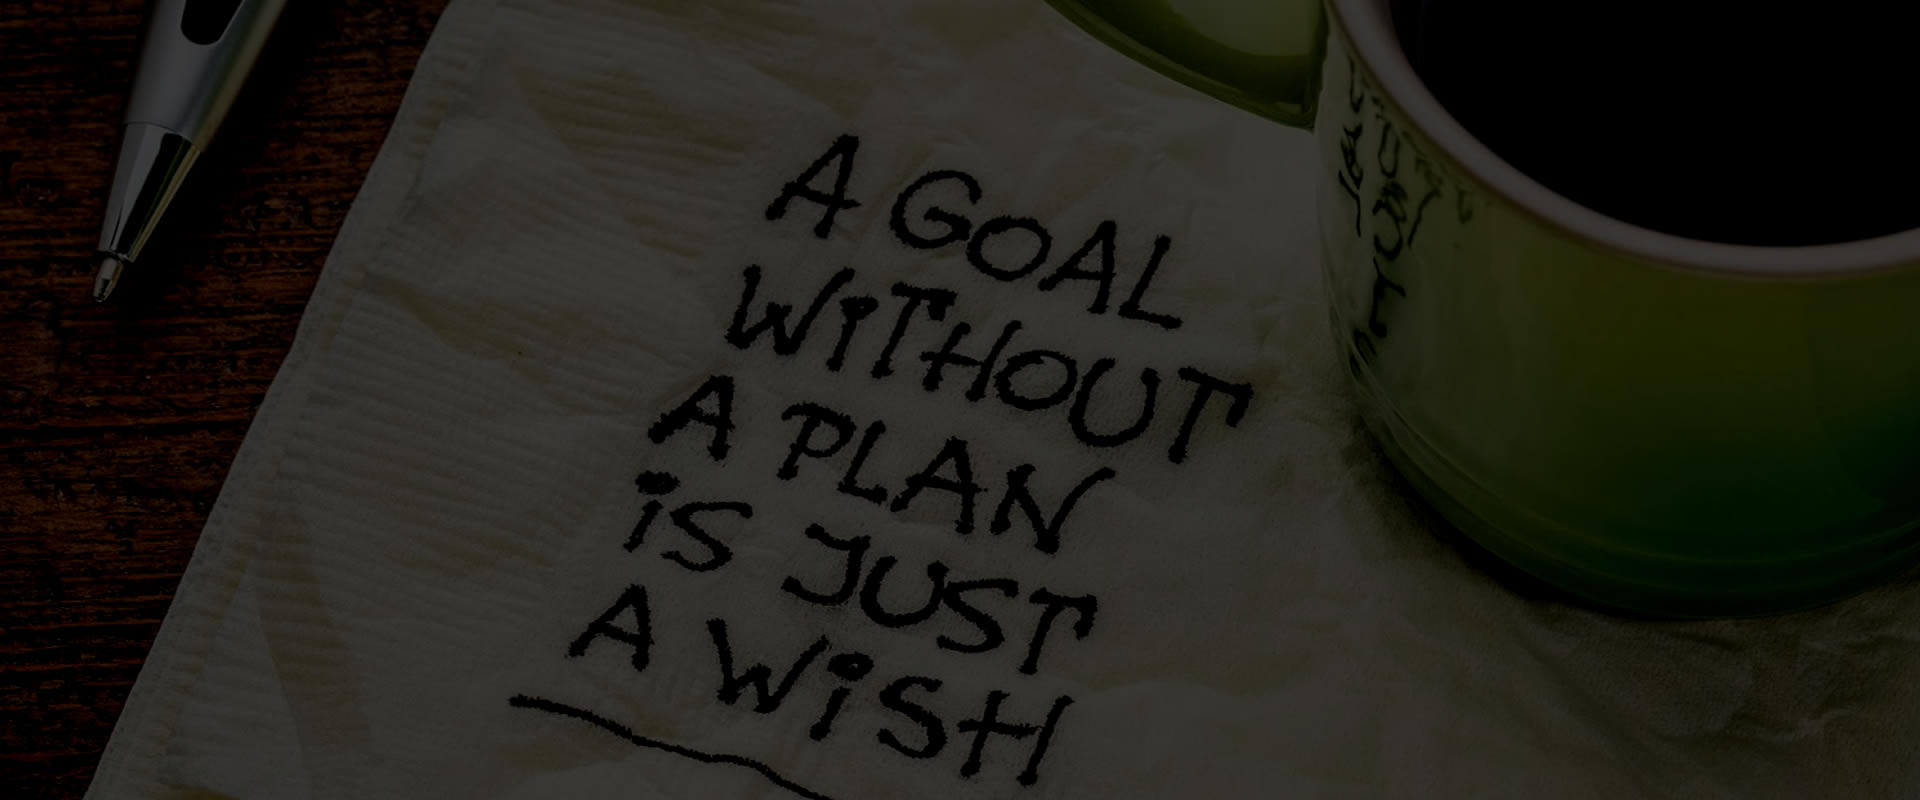 A GOAL
WiTHOUT
A PLAN
iS JUST
A WiSH